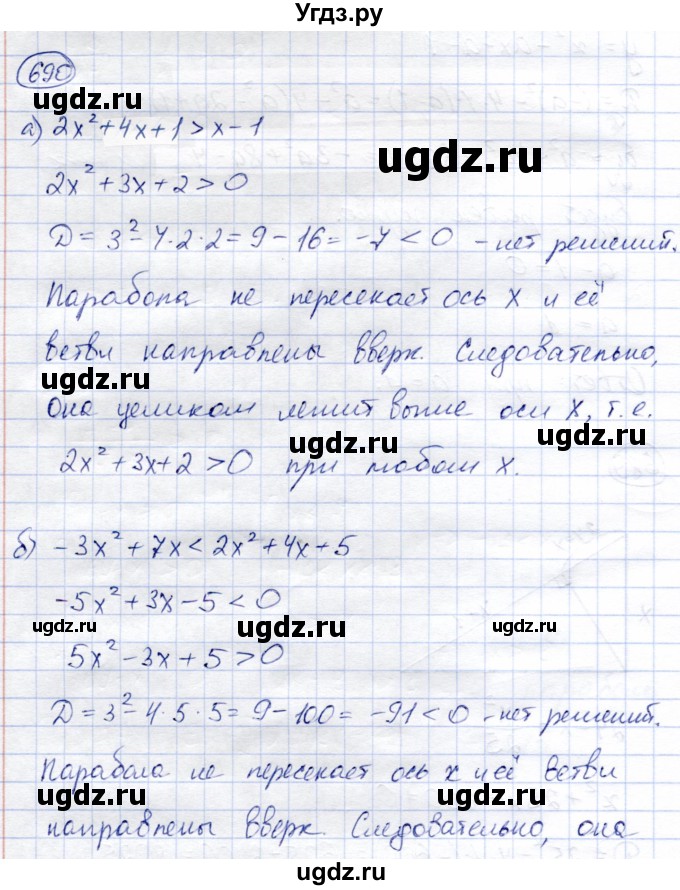 Угдз.ру
690
ugdz.ru
а) 2x² + 4x + 1 > x - 1
ugdz.ru
2x² + 3x + 2 > 0
D = 3² - 4·2·2 = 9 - 16 = -7 < 0 - нет решений.
ugdz.ru
Парабола не пересекает ось X и её
ветви направлены вверх. Следовательно,
ugdz.ru
Она целиком лежит выше оси X, т.е.
ugdz.ru
2x² + 3x + 2 > 0 при любом X.
ugdz.ru
б) -3x² + 7x < 2x² + 4x + 5
-5x² + 3x - 5 < 0
ugdz.ru ugdz.ru ugdz.ru
5x² - 3x + 5 > 0
D = 3² - 4·5·5 = 9 - 100 = -91 < 0 - нет решений.
ugdz.ru
Парабола не пересекает ось x и её ветви
ugdz.ru ugdz.ru
направлены вверх. Следовательно, она
ugdz.ru